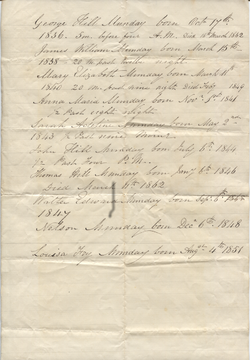 George Hill Munday born Oct 17th
1836. 5m before four A.M. Died 11 March 1862
James William Munday born March 13th
1838 - 20 to past eight
Mary Elizabeth Munday born March 11th
1840 20 and nine night Died July 1849
Anna Maria Munday born Novr 1st 1841
½ Past eight night
Sarah Munday born May 2nd
1843 ½ Past nine
John Hill Munday born July 6th 1844
½ Past Four P.M.
Thomas Hill Munday born Jany 6th 1846
Died March 4th 1862
Walter Edward Munday born Sept 6th
1847
Nelson Munday born Decr 6th 1848
Louisa Foy Munday born Augst 4th 1851